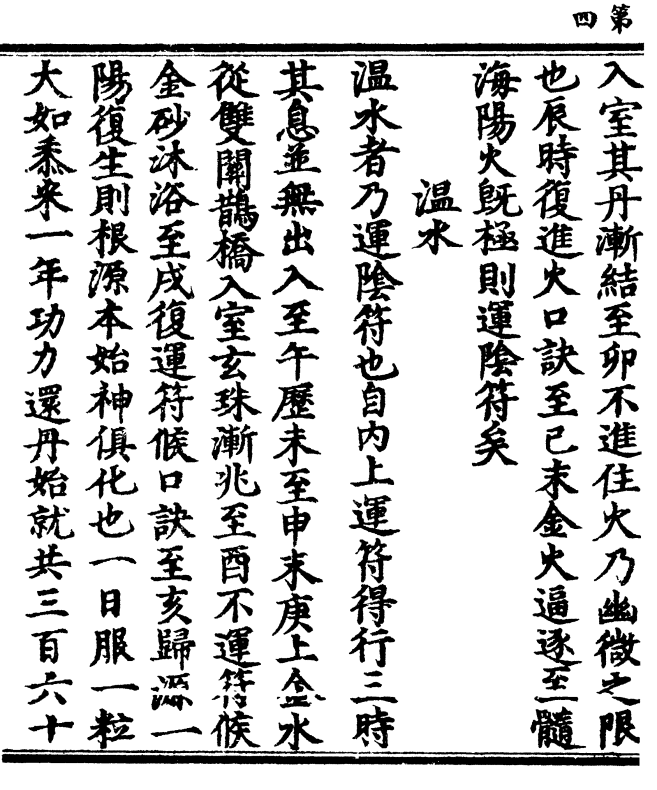 第四
入室其丹漸結至卯不進住火乃幽微之限
也辰時復進火口訣至巳末金火逼逐至一髓
海陽火既極則運陰符矣
温水
温水者乃運陰符也自内上運符得行三時
其息並無出入至午歷未至申末庚上金水
從雙關鵲橋入室玄珠漸兆至酉不運符候
金砂沐浴至戌復運符候口訣至亥歸源一
陽復生則根源本始神俱化也一日服一粒
大如黍米一年功力還丹始就共三百六十